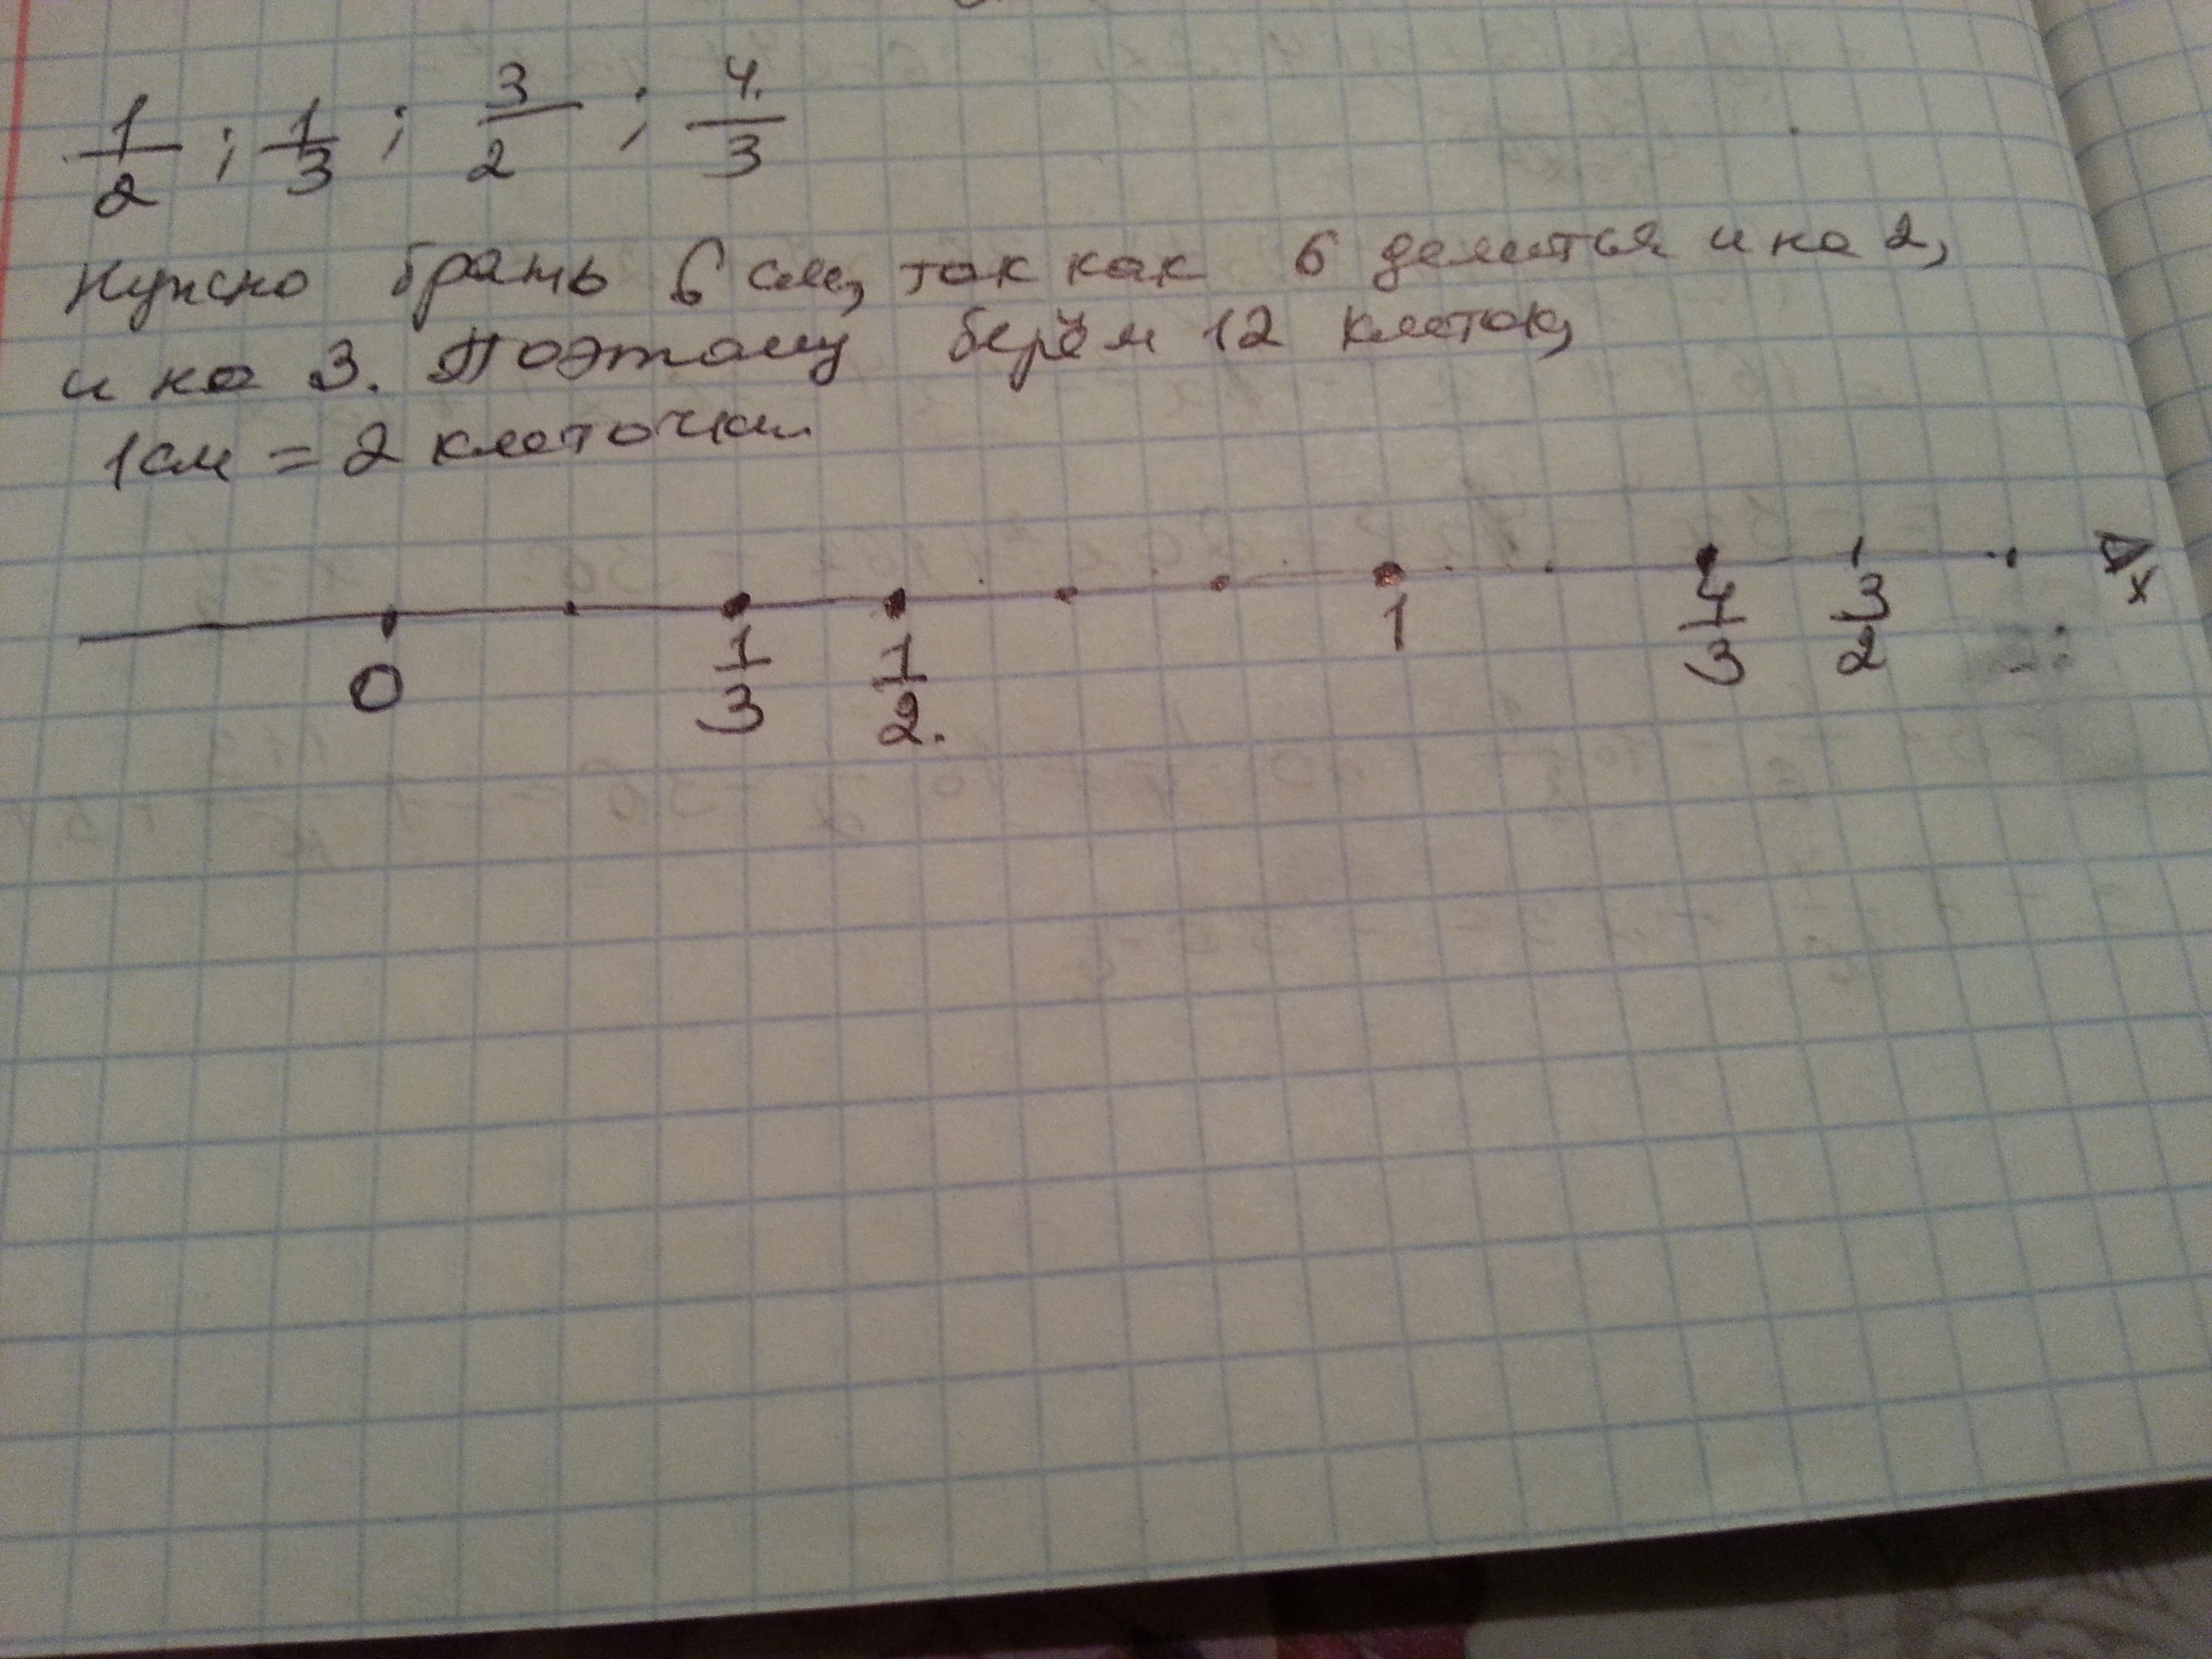 1/2 ; 1/3 ; 3/2 ; 4/3
Нужно брать 6 см, так как 6 делится и на 2,
и на 3. Поэтому берём 12 клеток,
1 см = 2 клеточки.
0 1/3 1/2. 1 4/3 3/2 x